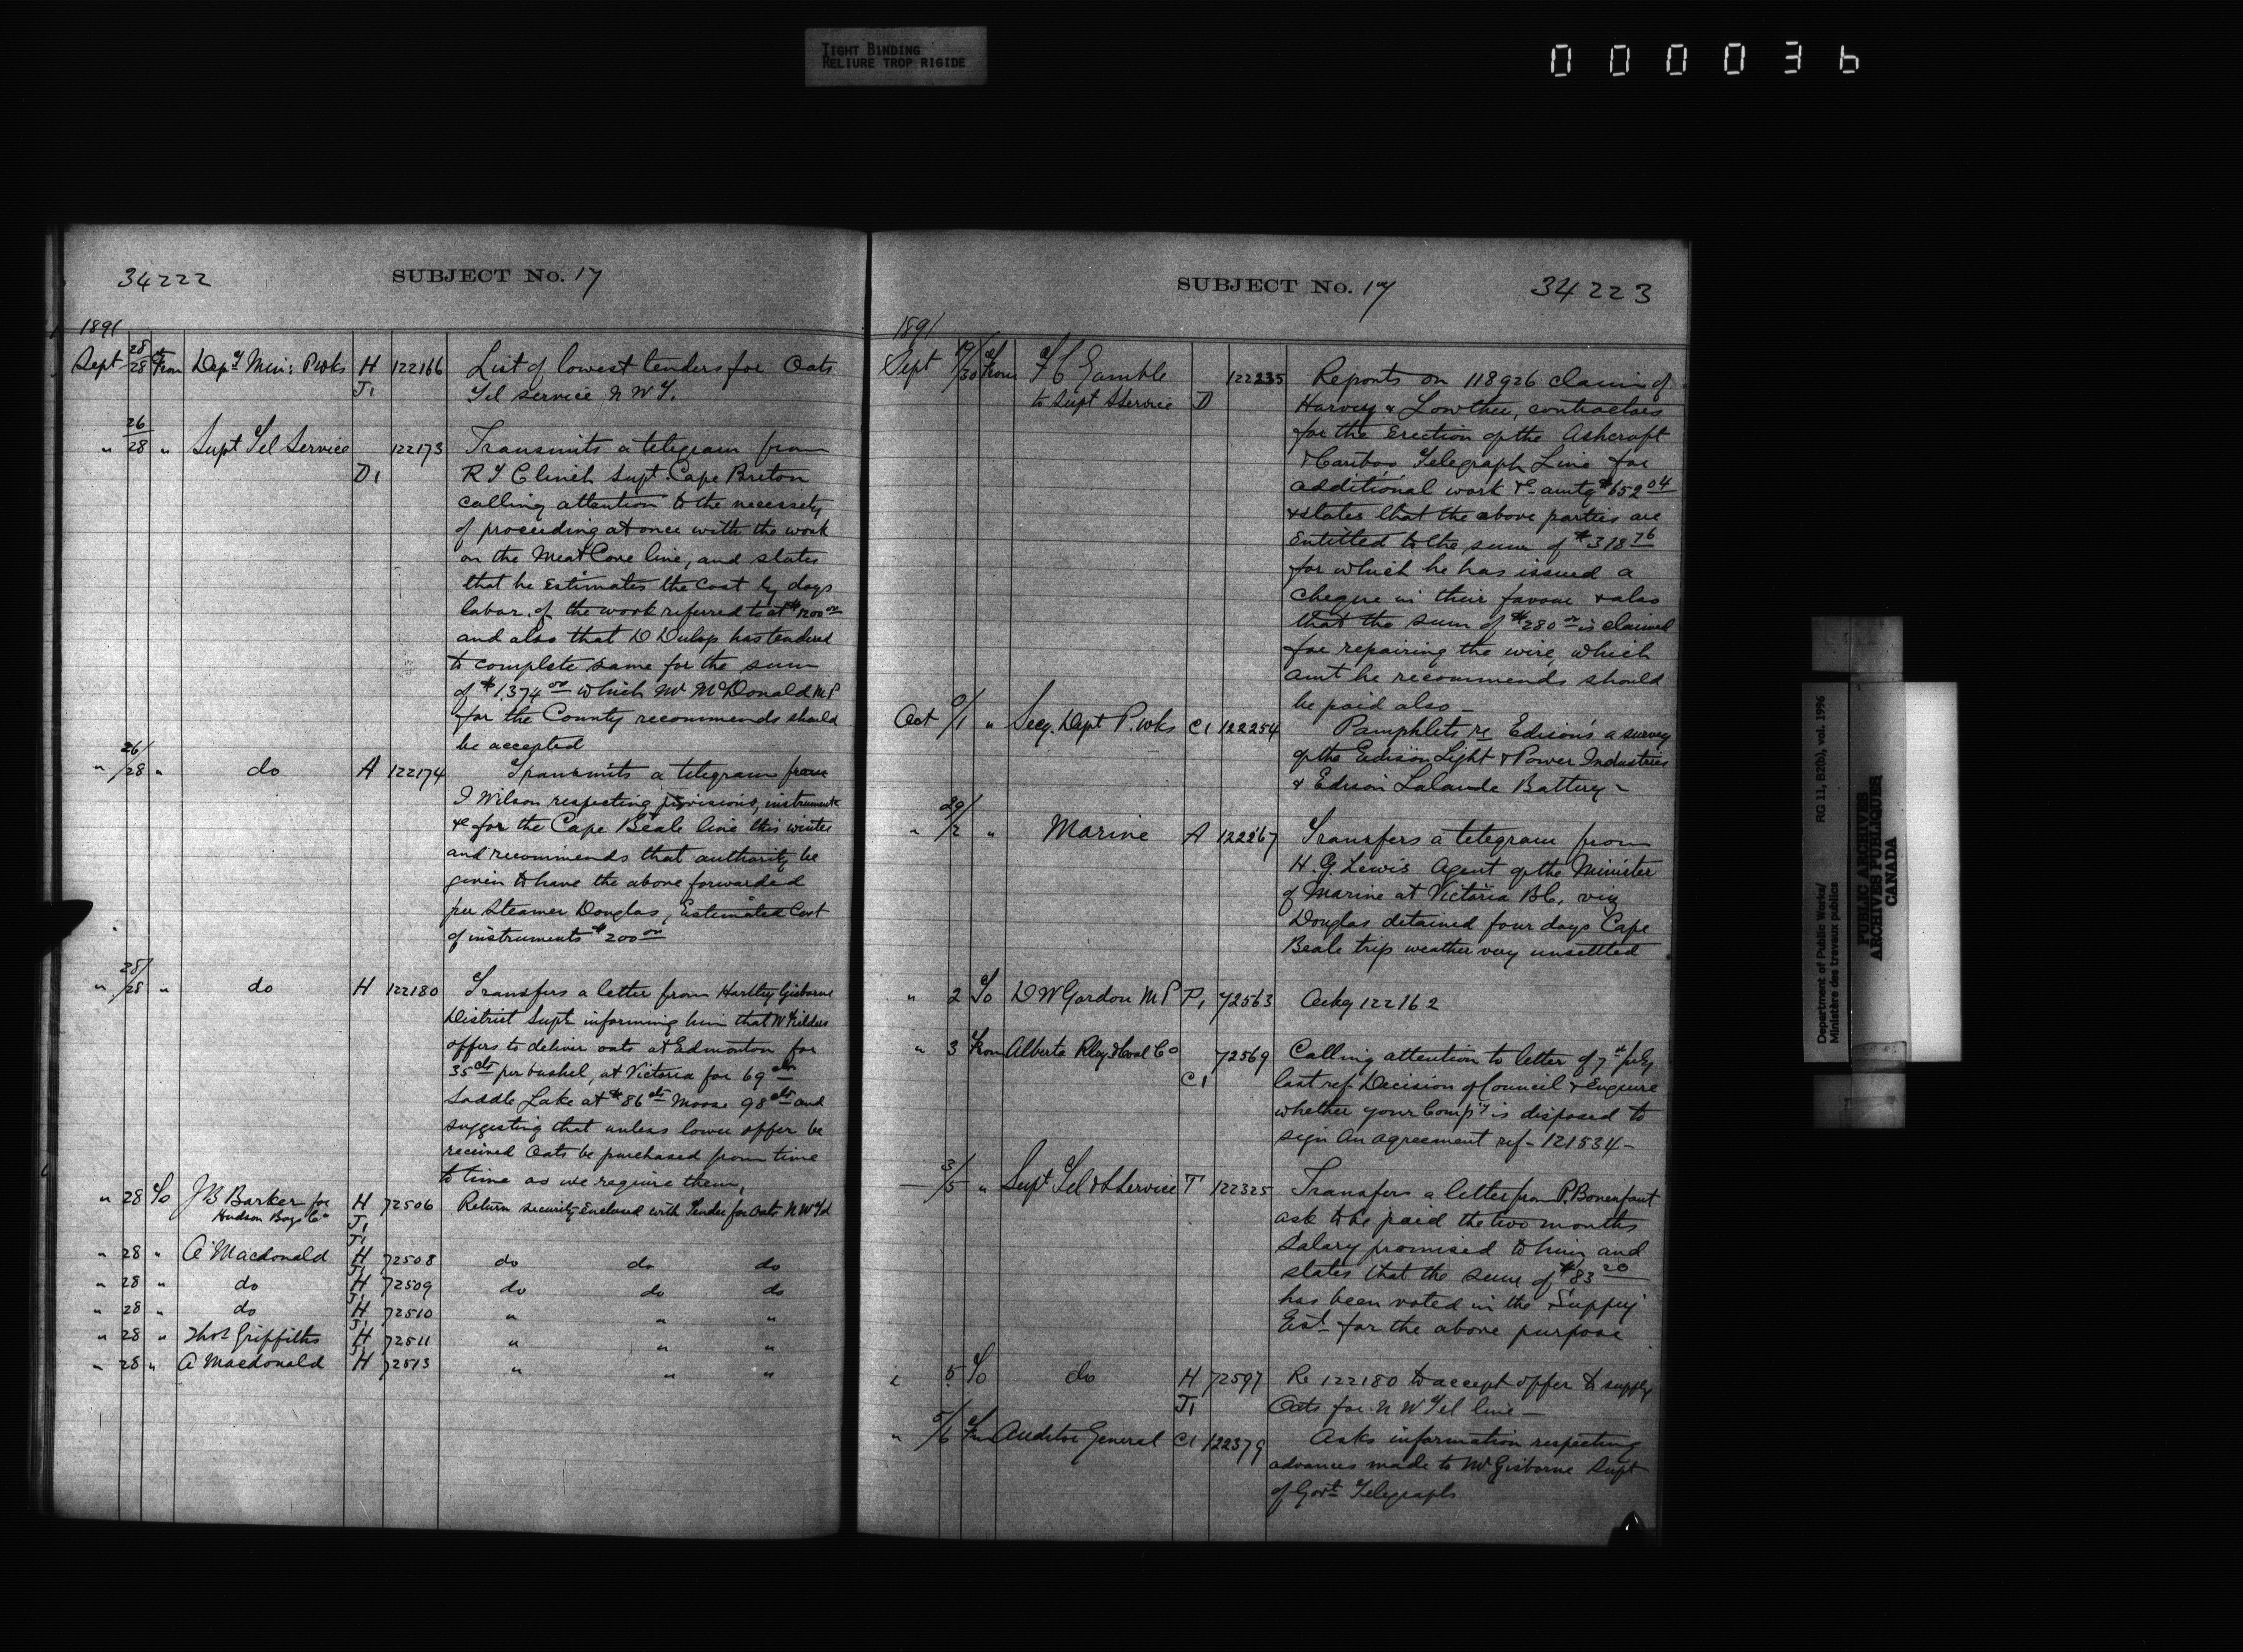 TIGHT BINDING
RELIURE TROP RIGIDE
000036
34222 SUBJECT No. 17
1891
Sept 28/28 From Depy Min: P Wks H J1 122166 List of lowest tenders for Oats
Tel service N W T.
" 26/28 " Supt Tel Service D1 122173 Transmits a telegram from
R T Clinch Supt Cape Breton
calling attention to the necessety
of proceeding at once with the work
on the Meat Cove line, and states
that he Estimates the Cost by days
labor of the work referred to at $1200 00
and also that D Dulop has tendered
to complete same for the sum
of $1,374 00 which Mr McDonald M P
for the County recommends should
be accepted
" 26/28 " do A 122174 Transmits a telegram from
J Wilson respecting provisions, instruments
&c for the Cape Beale line this winter
and recommends that authority be
given to have the above forwarded
per Steamer Douglas, Estimated Cost
of instruments $200 00
" 28/28 " do H 122180 Transfers a letter from Hartley Gisborne
District Supt informing him that W
offers to deliver oats at Edmonton for
35 cts per bushel, at Victoria for 69 cts
Saddle Lake at $86 cts Moose 98 cts and
suggesting that unless lower offer be
received Oats be purchased from time
to time as we require them,
" 28 To J B Barker for H J1 72506 Return security Enclosed with Tender for Oats N W Tel
Hudson Bays Co
" 28 " A Macdonald H J1 72508 do do do
" 28 " do H J1 72509 do do do
" 28 " do H J1 72510 " " "
" 28 " Thos Griffiths H J1 72511 " " "
" 28 " A Macdonald H J1 72513 " " "
SUBJECT No. 17 34223
1891
Sept 29/30 From F C Gamble 122235 Reports on 118926 claim of
to Supt S Service D Harvey & Lowther, contractors
for the Erection of the Ashcroft
& Cariboo Telegraph Line for
additional work &c amtg $652 04
& states that the above parties are
Entitled to the sum of $318 76
for which he has issued a
cheque in their favour & also
that the sum of $280 00 is claimed
for repairing the wire, which
amt he recommends should
be paid also -
Oct 0/1 " Secy. Dept P. Wks C1 122254 Pamphlets re Edison's a survey
of the Edison Light & Power Industries
& Edison Lalande Battery -
" 29/2 " Marine A 122267 Transfers a telegram from
H. G. Lewis Agent of the Minister
of Marine at Victoria BC, viz
Douglas detained four days Cape
Beale trip weather very unsettled
" 2 To D W Gordon M P P1 72563 Ackg 122162
" 3 From Alberta Rlay & Coal Co C1 72569 Calling attention to letter of 7th July
last ref. Decision of Council & Enquire
whether your Compy is disposed to
sign an agreement ref - 121534 -
3/5 " Supt Tel & S Service T 122325 Transfers a letter from P. Bonenfant
ask to be paid the two months
salary promised to him and
states that the sum of $83 20
has been voted in the Supply
Est for the above purpose
" 5 To do H J1 72597 Re 122180 to accept offer to supply
Oats for N W Tel line -
" 5/6 Fm Auditor General C1 122379 Asks information respecting
advances made to Mr Gisborne Supt
of Govt Telegraphs
Department of Public Works/ RG 11, B2(b), vol. 1996
Ministère des travaux publics
PUBLIC ARCHIVES
ARCHIVES PUBLIQUES
CANADA